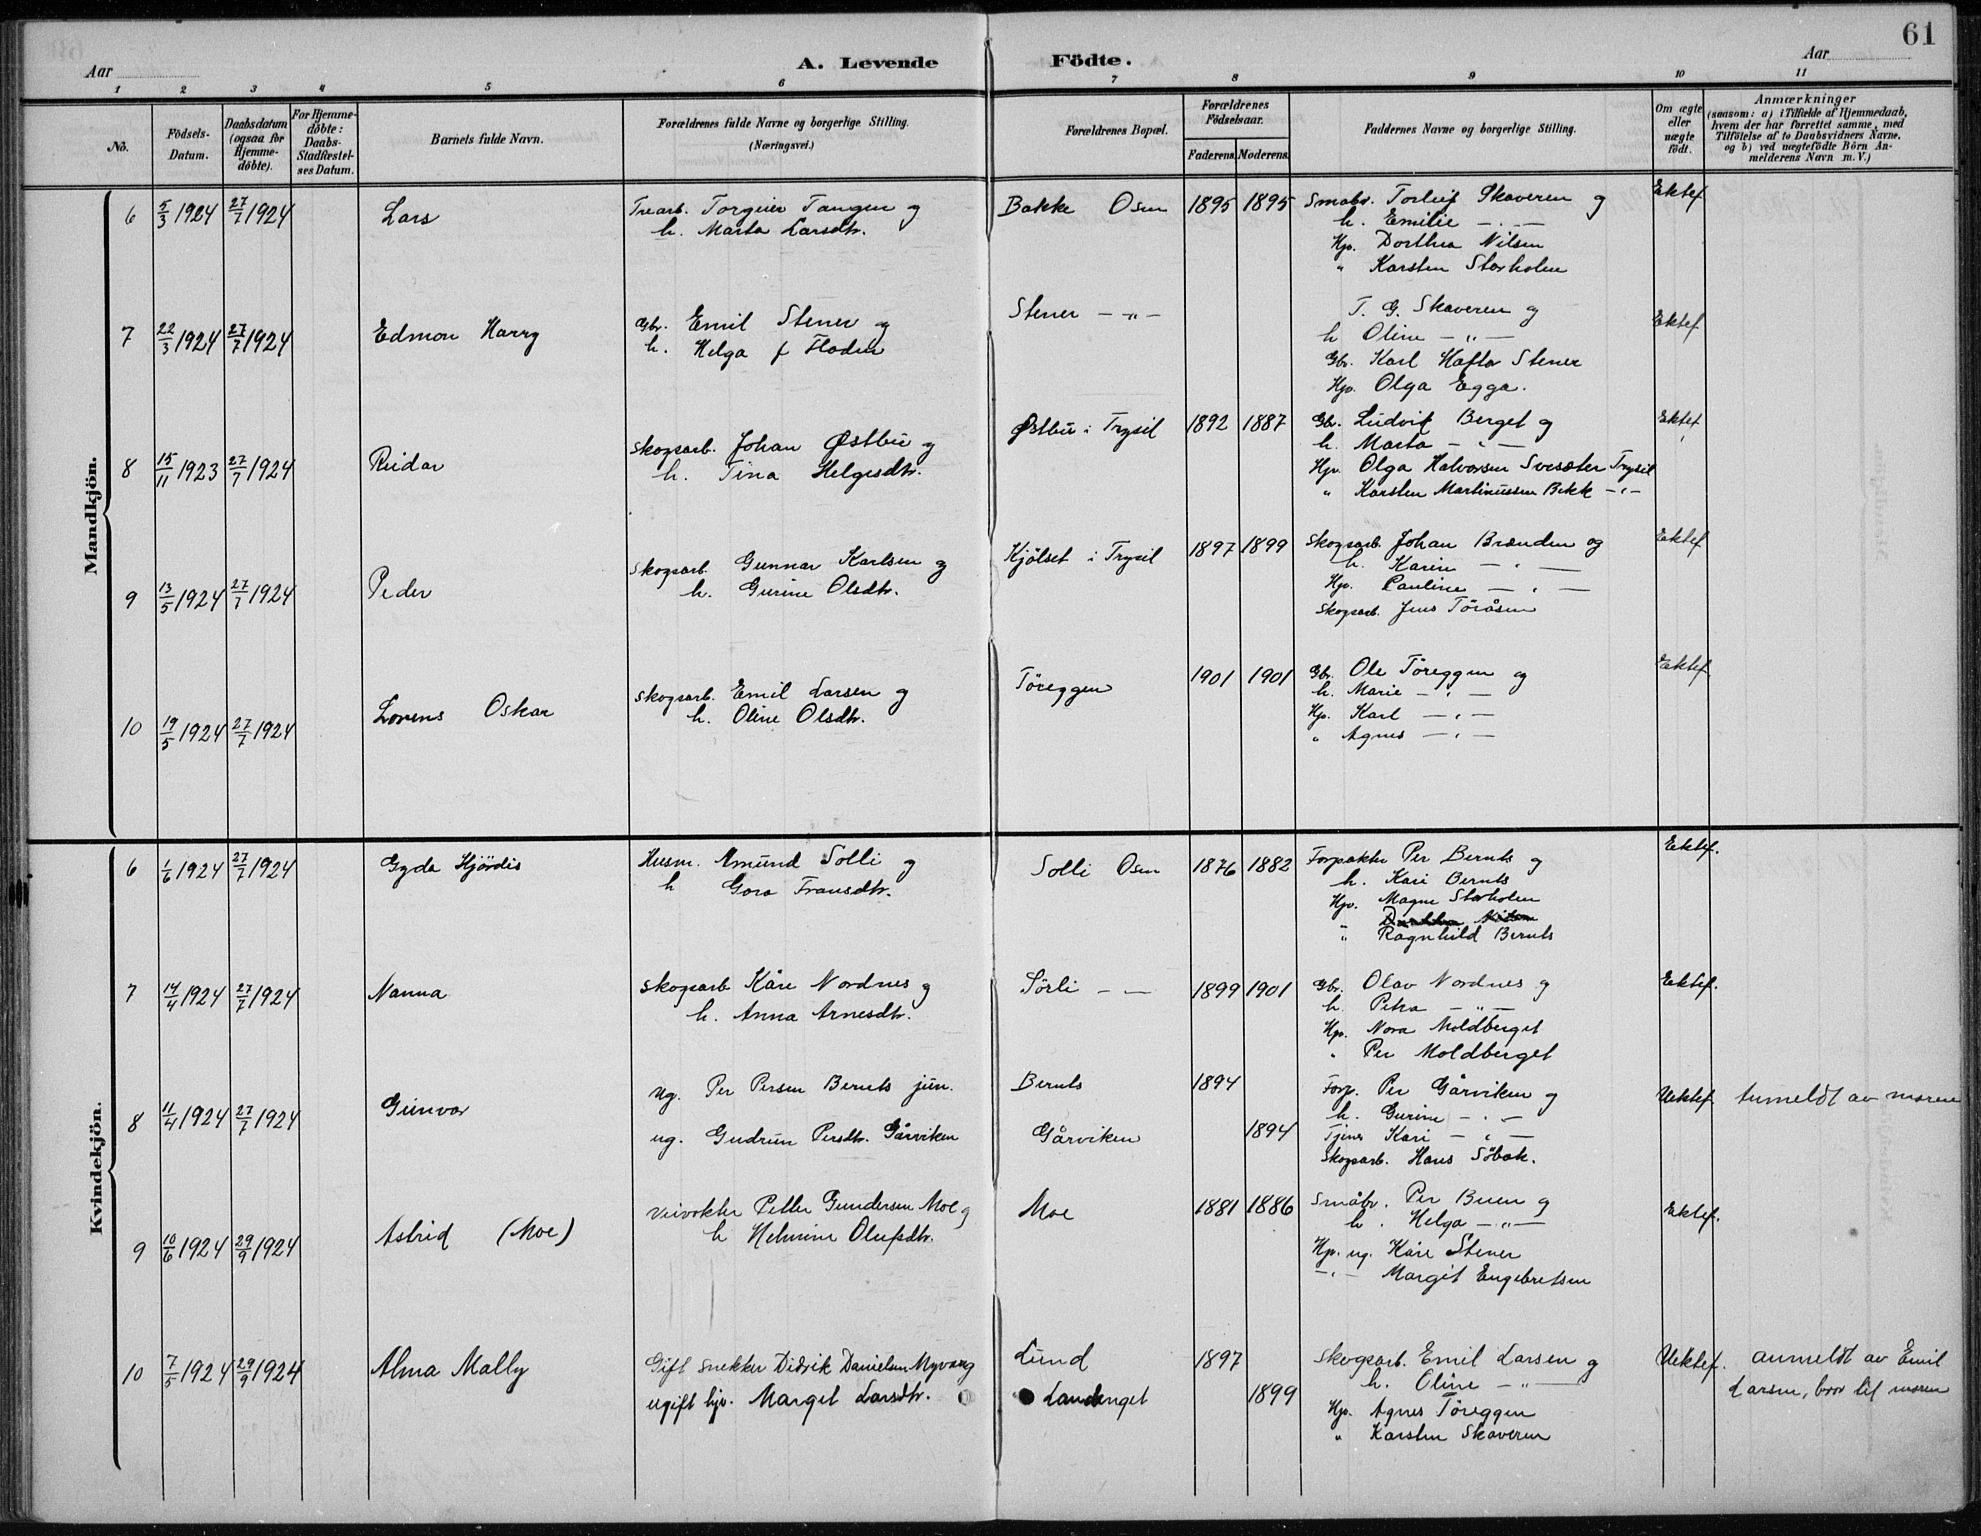 61
Aar A. Levende Födte. Aar
1 2 3 4 5 6 7 8 9 10 11
No. Födsels-Datum. Daabsdatum (ogsaa for Hjemme-döbte). For Hjemme-döbte: Daabs-Stadfæstel-ses Datum. Barnets fulde Navn. Forældrenes fulde Navne og borgerlige Stilling. (Næringsvei.) Forældrenes Bopæl. Forældrenes Födselsaar. Faderens. Moderens. Faddernes Navne og borgerlige Stilling. Om ægte eller uægte födt. Anmærkninger (saasom: a) i Tilfælde af Hjemmedaab, hvem der har forrettet samme, med Tilföielse af to Daabsvidners Navne, og b) ved uægtefödte Börn An-melderens Navn m. V.)
Mandkjön.
6 5/3 1924 27/7 1924 Lars Trearb. Torgeir Tangen og Bakke Osen 1895 1895 Småbr. Torleif Skaveren og Ektef
h. Marta Larsdtr. h. Emilie — " —
Hp. Dorthea Nilsen
" Karsten Storholen
7 22/3 1924 27/7 1924 Edmon Harry Gbr. Emil Stener og Stener — " — T. G. Skaveren og Ektef
h. Helga f Floden h Oline — " —
Gbr. Karl Hafto Stener
Hp. Olga Egga.
8 15/11 1923 27/7 1924 Reidar Skogsarb. Johan Østbu og Østbu i Trysil 1892 1887 Gbr. Ludvik Berget og Ektef
h. Tina Helgesdtr. h. Marta — " —
Hp. Olga Halvorsen Svesæter Trysil
" Karsten Martinussen Bekk — " —
9 13/5 1924 27/7 1924 Peder Skogsarb. Gunnar Karlsen og Kjölset i Trysil 1897 1899 Skogsarb. Johan Brænden og Ektef
h. Gurine Olsdtr. h. Karin — " —
Hp. Pauline — " —
Skogsarb. Jens Töråsen
10 19/5 1924 27/7 1924 Lorens Oskar Skogsarb. Emil Larsen og Töreggen 1901 1901 Gbr. Ole Töreggen og Ektef
h. Oline Olsdtr. h. Marie — " —
Hp. Karl — " —
" Agnes — " —
Kvindekjön.
6 1/6 1924 27/7 1924 Gyda Hjördis Husm. Amund Solli og Solli Osen 1876 1882 Forpakter Per Bernts og Ektef.
h Gora Fransdtr. h. Kari Bernts
Hp. Magne Storholen
" Dorthea Nilsen
" Ragnhild Bernts
7 14/4 1924 27/7 1924 Nanna Skogsarb Kåre Nordnes og Sörli — — 1899 1901 Gbr. Olav Nordnes og Ektef.
h. Anna Arnesdtr. h. Petra — " —
Hp. Nora Moldberget
" Per Moldberget
8 11/4 1924 27/7 1924 Gunvor ug. Per Persen Bernts jun. Bernts 1894 Forp. Per Gårviken og Uektef. anmeldt av moren
h. Gurine — " —
ug. Gudrun Persdtr. Gårviken Gårviken 1894 Tjener Kari — " —
Skogsarb. Hans Söbak.
9 10/6 1924 29/9 1924 Astrid (Moe) Veivokter Petter Gundersen Moe og Moe 1881 1886 Småbr. Per Buen og Ektef.
h Helmine Olufsdtr. h. Helga — " —
Hp. ug. Kåre Stener
— " — Margit Engebretsen
10 7/5 1924 29/9 1924 Alma Mally Gift snekker Didrik Danielsen Myvang Lund 1897 Skogsarb. Emil Larsen og Uektef. anmeldt av Emil
ugift hp. Margit Larsdtr. Landenget 1899 h. Oline — " — Larsen, bror til moren
Hp. Agnes Töreggen
" Karsten Skaveren